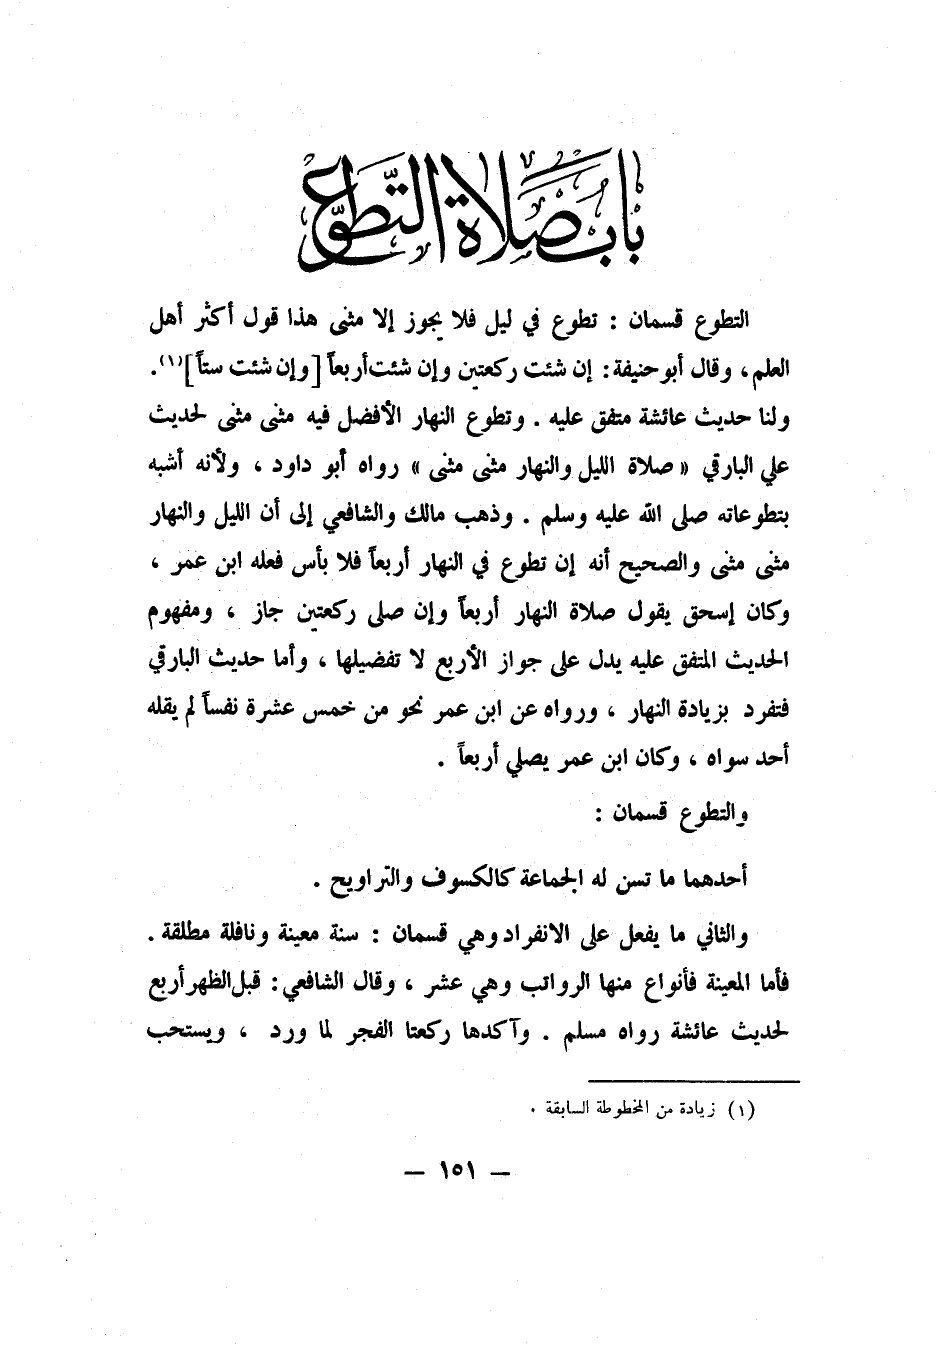 باب صلاة التطوع
التطوع قسمان : تطوع في ليل فلا يجوز إلا مثنى هذا قول أكثر أهل
العلم ، وقال أبو حنيفة : إن شئت ركعتين وإن شئت أربعاً [وإن شئت ستاً](١).
ولنا حديث عائشة متفق عليه . وتطوع النهار الأفضل فيه مثنى مثنى لحديث
علي البارقي « صلاة الليل والنهار مثنى مثنى » رواه أبو داود ، ولأنه أشبه
بتطوعاته صلى الله عليه وسلم . وذهب مالك والشافعي إلى أن الليل والنهار
مثنى مثنى والصحيح أنه إن تطوع في النهار أربعاً فلا بأس فعله ابن عمر ،
وكان إسحق يقول صلاة النهار أربعاً وإن صلى ركعتين جاز ، ومفهوم
الحديث المتفق عليه يدل على جواز الأربع لا تفضيلها ، وأما حديث البارقي
فتفرد بزيادة النهار ، ورواه عن ابن عمر نحو من خمس عشرة نفساً لم يقله
أحد سواه ، وكان ابن عمر يصلي أربعاً .
والتطوع قسمان :
أحدهما ما تسن له الجماعة كالكسوف والتراويح .
والثاني ما يفعل على الانفراد وهي قسمان : سنة معينة ونافلة مطلقة .
فأما المعينة فأنواع منها الرواتب وهي عشر ، وقال الشافعي : قبل الظهر أربع
لحديث عائشة رواه مسلم . وآكدها ركعتا الفجر لما ورد ، ويستحب
(١) زيادة من المخطوطة السابقة .
— ١٥١ —